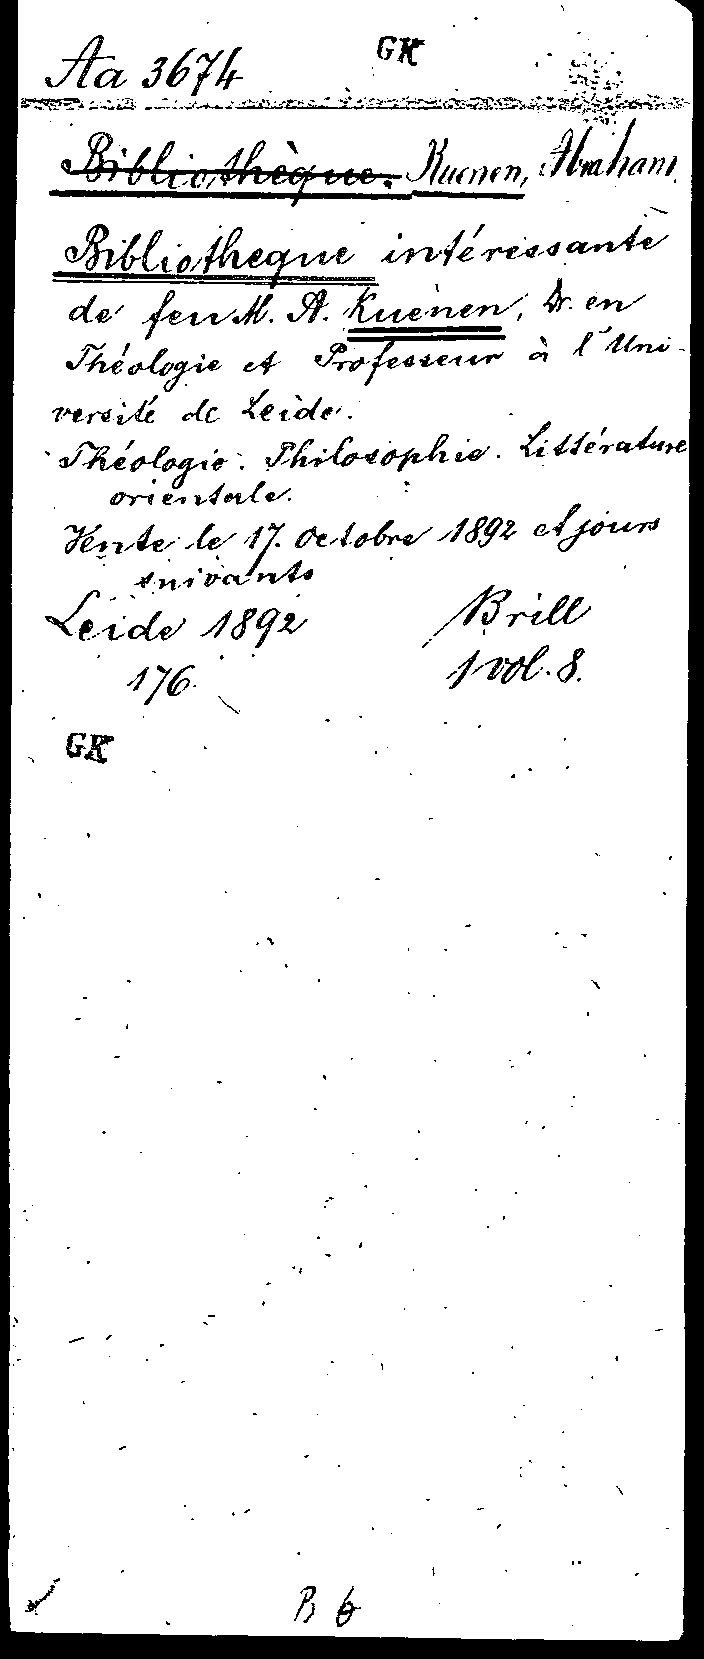 Aa 3674 GK
Bibliothèque. Kuenen, Abraham.
Bibliotheque intéressante
de feu M. A. Kuenen, Dr. en
Théologie et Professeur à l'Uni-
versité de Leide.
Théologie. Philosophie. Littérature
orientale.
Vente le 17. Octobre 1892 et jours
suivants
Leide 1892 Brill
176 1 vol. 8.
GK
B 6